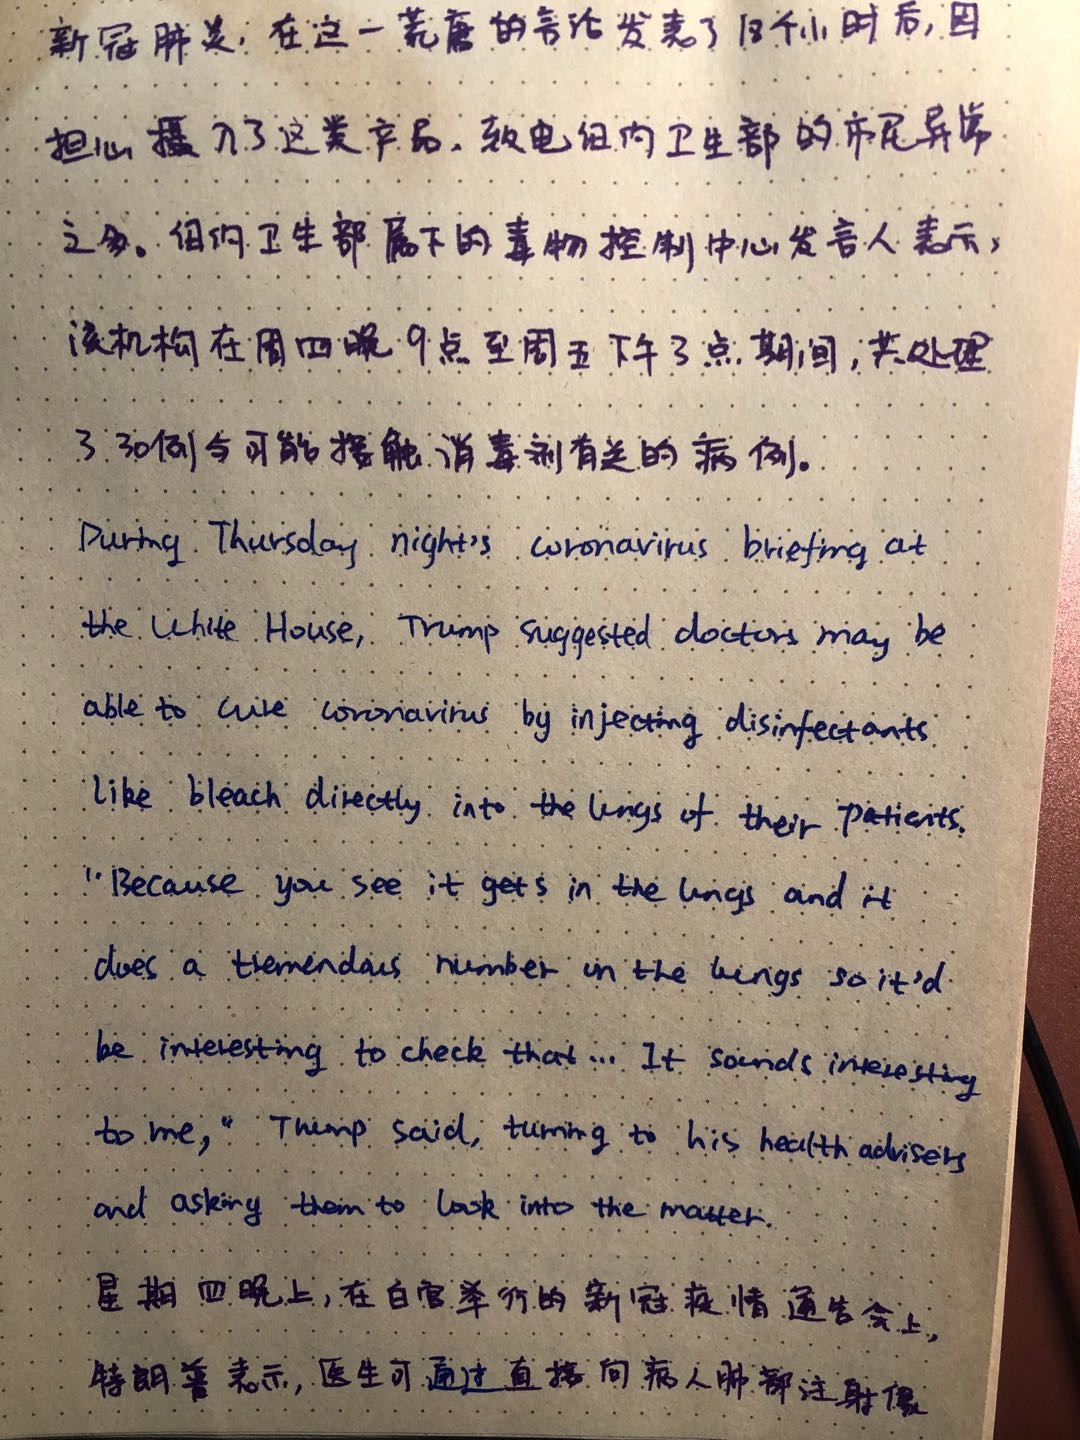 新冠肺炎,在这一荒唐的言论发表了18个小时后,因
担心摄入了这类产品,致电纽约卫生部的市民异常
之多。纽约卫生部属下的毒物控制中心发言人表示,
该机构在周四晚9点至周五下午3点期间,共处理
了30例与可能接触消毒剂有关的病例。
During Thursday night's coronavirus briefing at
the White House, Trump suggested doctors may be
able to cure coronavirus by injecting disinfectants
like bleach directly into the lungs of their patients.
"Because you see it gets in the lungs and it
does a tremendous number on the lungs so it'd
be interesting to check that... It sounds interesting
to me," Trump said, turning to his health advisers
and asking them to look into the matter.
星期四晚上,在白宫举行的新冠疫情通告会上,
特朗普表示,医生可通过直接向病人肺部注射像